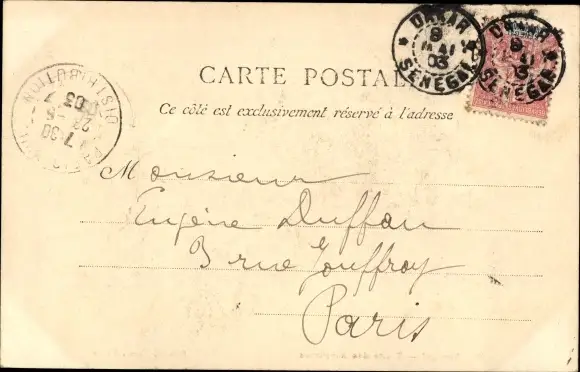 DAKAR
8
MAI
03
SENEGAL
DAKAR
8
MAI
03
SENEGAL
CARTE POSTALE
Ce côté est exclusivement réservé à l'adresse
DISTRIBUTION
7 30
Monsieur
Eugène Duffau
3 rue Jouffroy
Paris